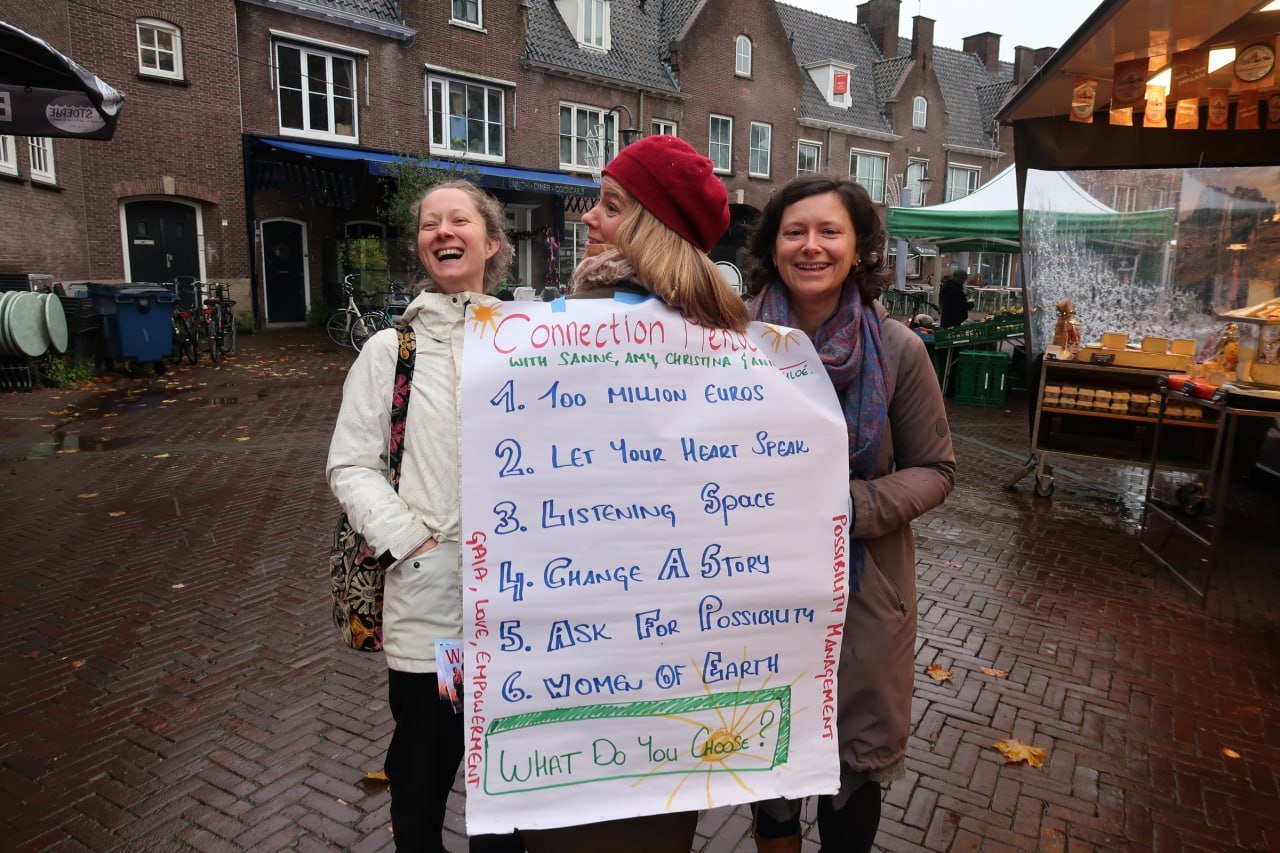 STOEPJE
LUNCH - DINER - COCKTAILS
Connection
WITH SANNE, AMY, CHRISTINA &
1. 100 MILLION EUROS
2. LET YOUR HEART SPEAK
3. LISTENING SPACE
4. CHANGE A STORY
5. ASK FOR POSSIBILITY
6. WOMEN OF EARTH
WHAT DO YOU CHOOSE?
GAIA, LOVE, EMPOWERMENT
POSSIBILITY MANAGEMENT